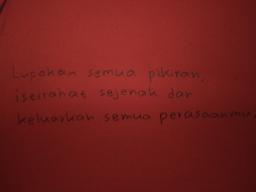 Lupakan semua pikiran,
iserahat sejenak dan
keluarkan semua perasaanmu.